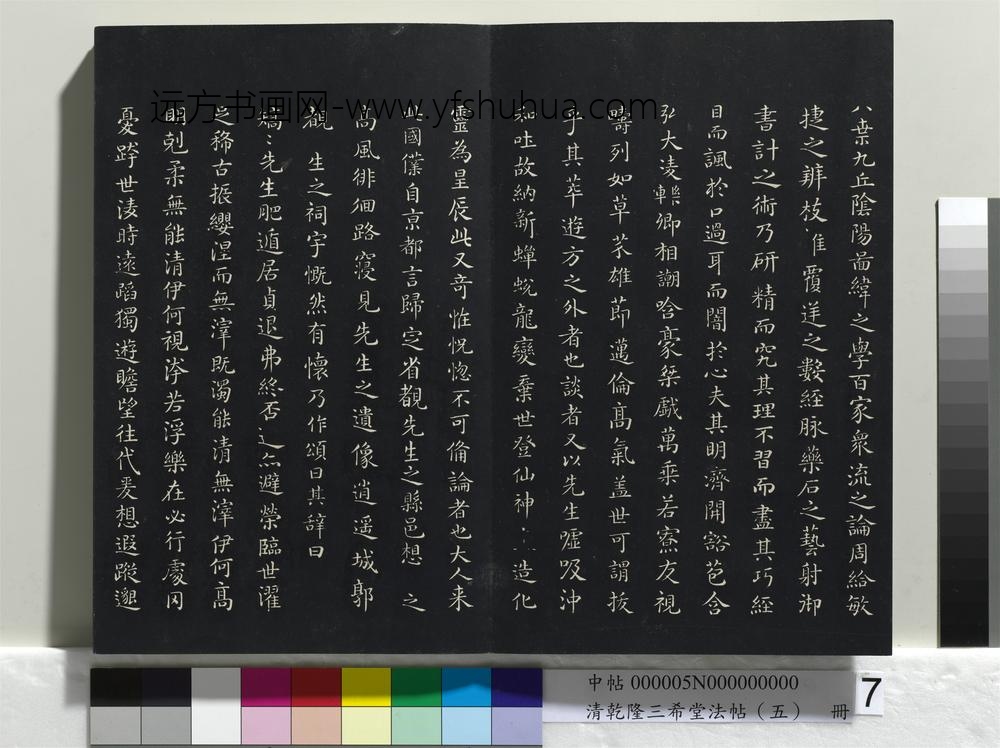 远方书画网-www.yfshuhua.com
八索九丘陰陽啚緯之學百家衆流之論周給敏
捷之辨枝離覆逆之數經脉藥石之藝射御
書計之術乃研精而究其理不習而盡其巧經
目而諷於口過耳而闇於心夫其明濟開豁苞含
弘大凌轢卿相謿哈豪桀戯萬乗若寮友視
疇列如草芥雄莭邁倫髙氣盖世可謂拔
乎其萃遊方之外者也談者又以先生噓吸沖
和吐故納新蟬蛻龍變棄世登仙神造化
靈為星辰此又竒恠怳惚不可俻論者也大人来
此國僕自京都言歸定省覩先生之縣邑想之
髙風徘徊路寢見先生之遺像逍遥城郭
覩生之祠宇慨然有懷乃作頌曰其辭曰
矯〻先生肥遁居貞退弗終否亦避榮臨世濯
足稀古振纓涅而無滓旣濁能清無滓伊何髙
明剋柔無能清伊何視洿若浮樂在必行處冈
憂跨世淩時遠蹈獨遊瞻望往代爰想遐蹤邈
中帖 000005N000000000
清乾隆三希堂法帖（五） 冊
7